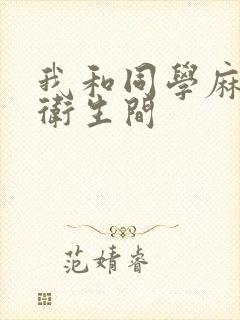 我和同學麻
衛生間
范婧睿